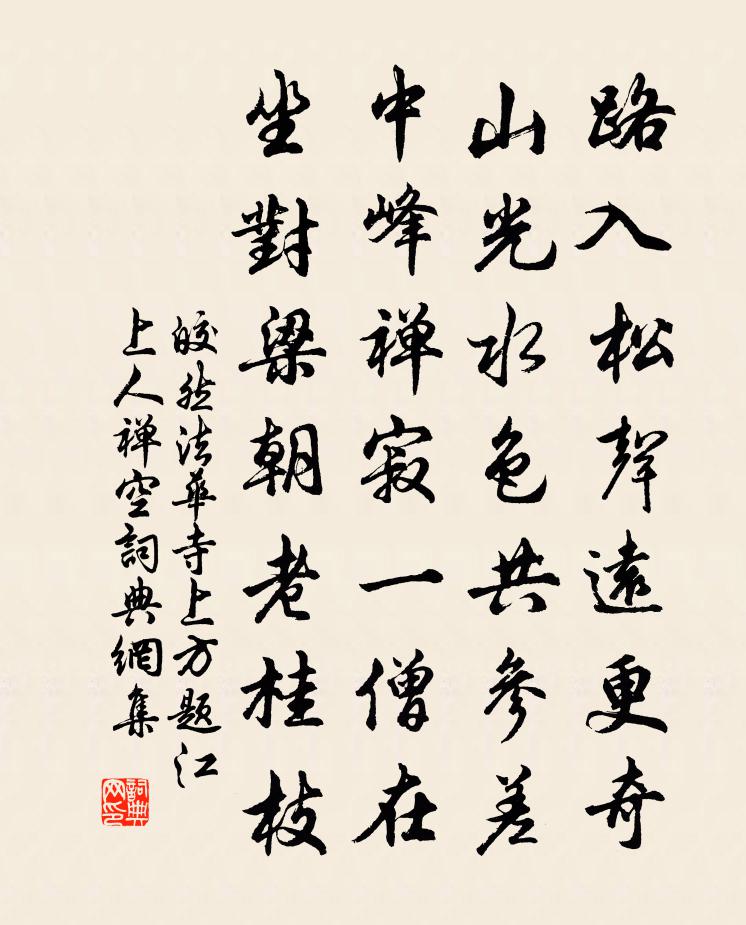 路入松聲遠更奇
山光水色共參差
中峰禅寂一僧在
坐對梁朝老桂枝
皎然法華寺上方題江
上人禅空詞典網集
詞典
网印